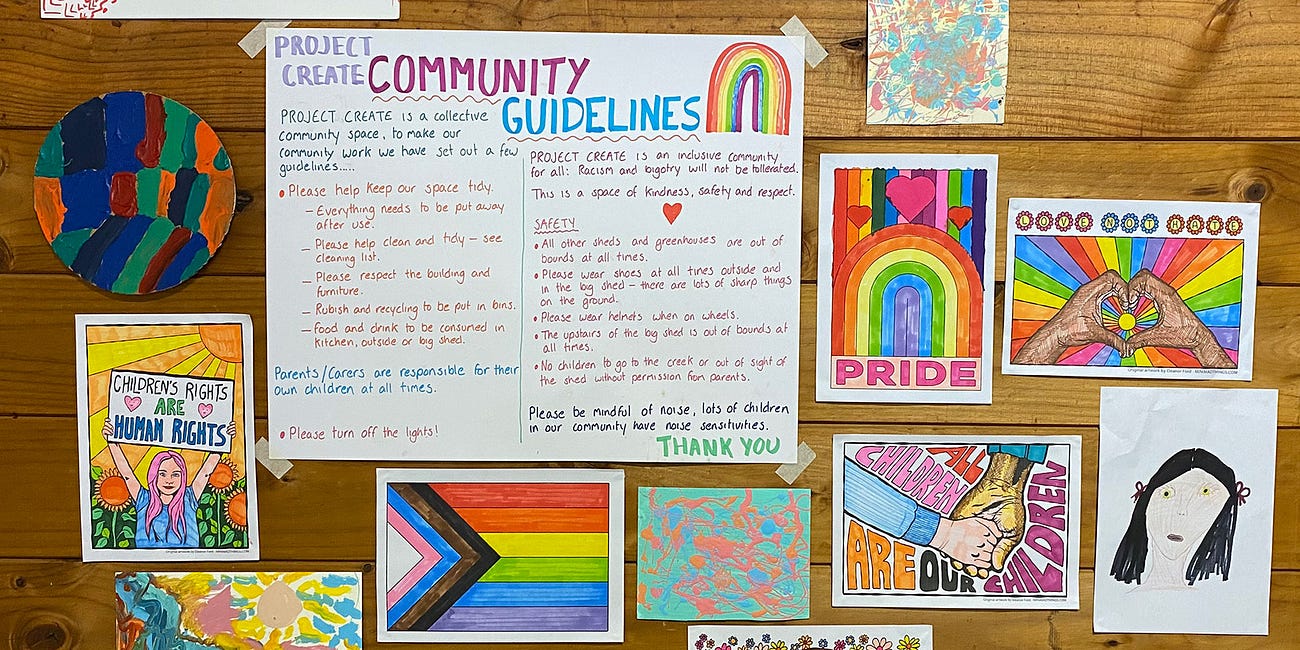 PROJECT
CREATE COMMUNITY
GUIDELINES
PROJECT CREATE is a collective
community space, to make our
community work we have set out a few
guidelines.....
• Please help keep our space tidy.
– Everything needs to be put away
after use.
– Please help clean and tidy – see
cleaning list.
– Please respect the building and
furniture.
– Rubish and recycling to be put in bins.
– Food and drink to be consumed in
kitchen, outside or big shed.
Parents/Carers are responsible for their
own children at all times.
• Please turn off the lights!
PROJECT CREATE is an inclusive community
for all: Racism and bigotry will not be tollerated.
This is a space of kindness, safety and respect.
SAFETY
• All other sheds and greenhouses are out of
bounds at all times.
• Please wear shoes at all times outside and
in the big shed – there are lots of sharp things
on the ground.
• Please wear helmets when on wheels.
• The upstairs of the big shed is out of bounds at
all times.
• No children to go to the creek or out of sight of
the shed without permission from parents.
Please be mindful of noise, lots of children
in our community have noise sensitivities.
THANK YOU
CHILDREN'S RIGHTS
ARE
HUMAN RIGHTS
PRIDE
LOVE NOT HATE
ALL
CHILDREN
ARE OUR CHILDREN